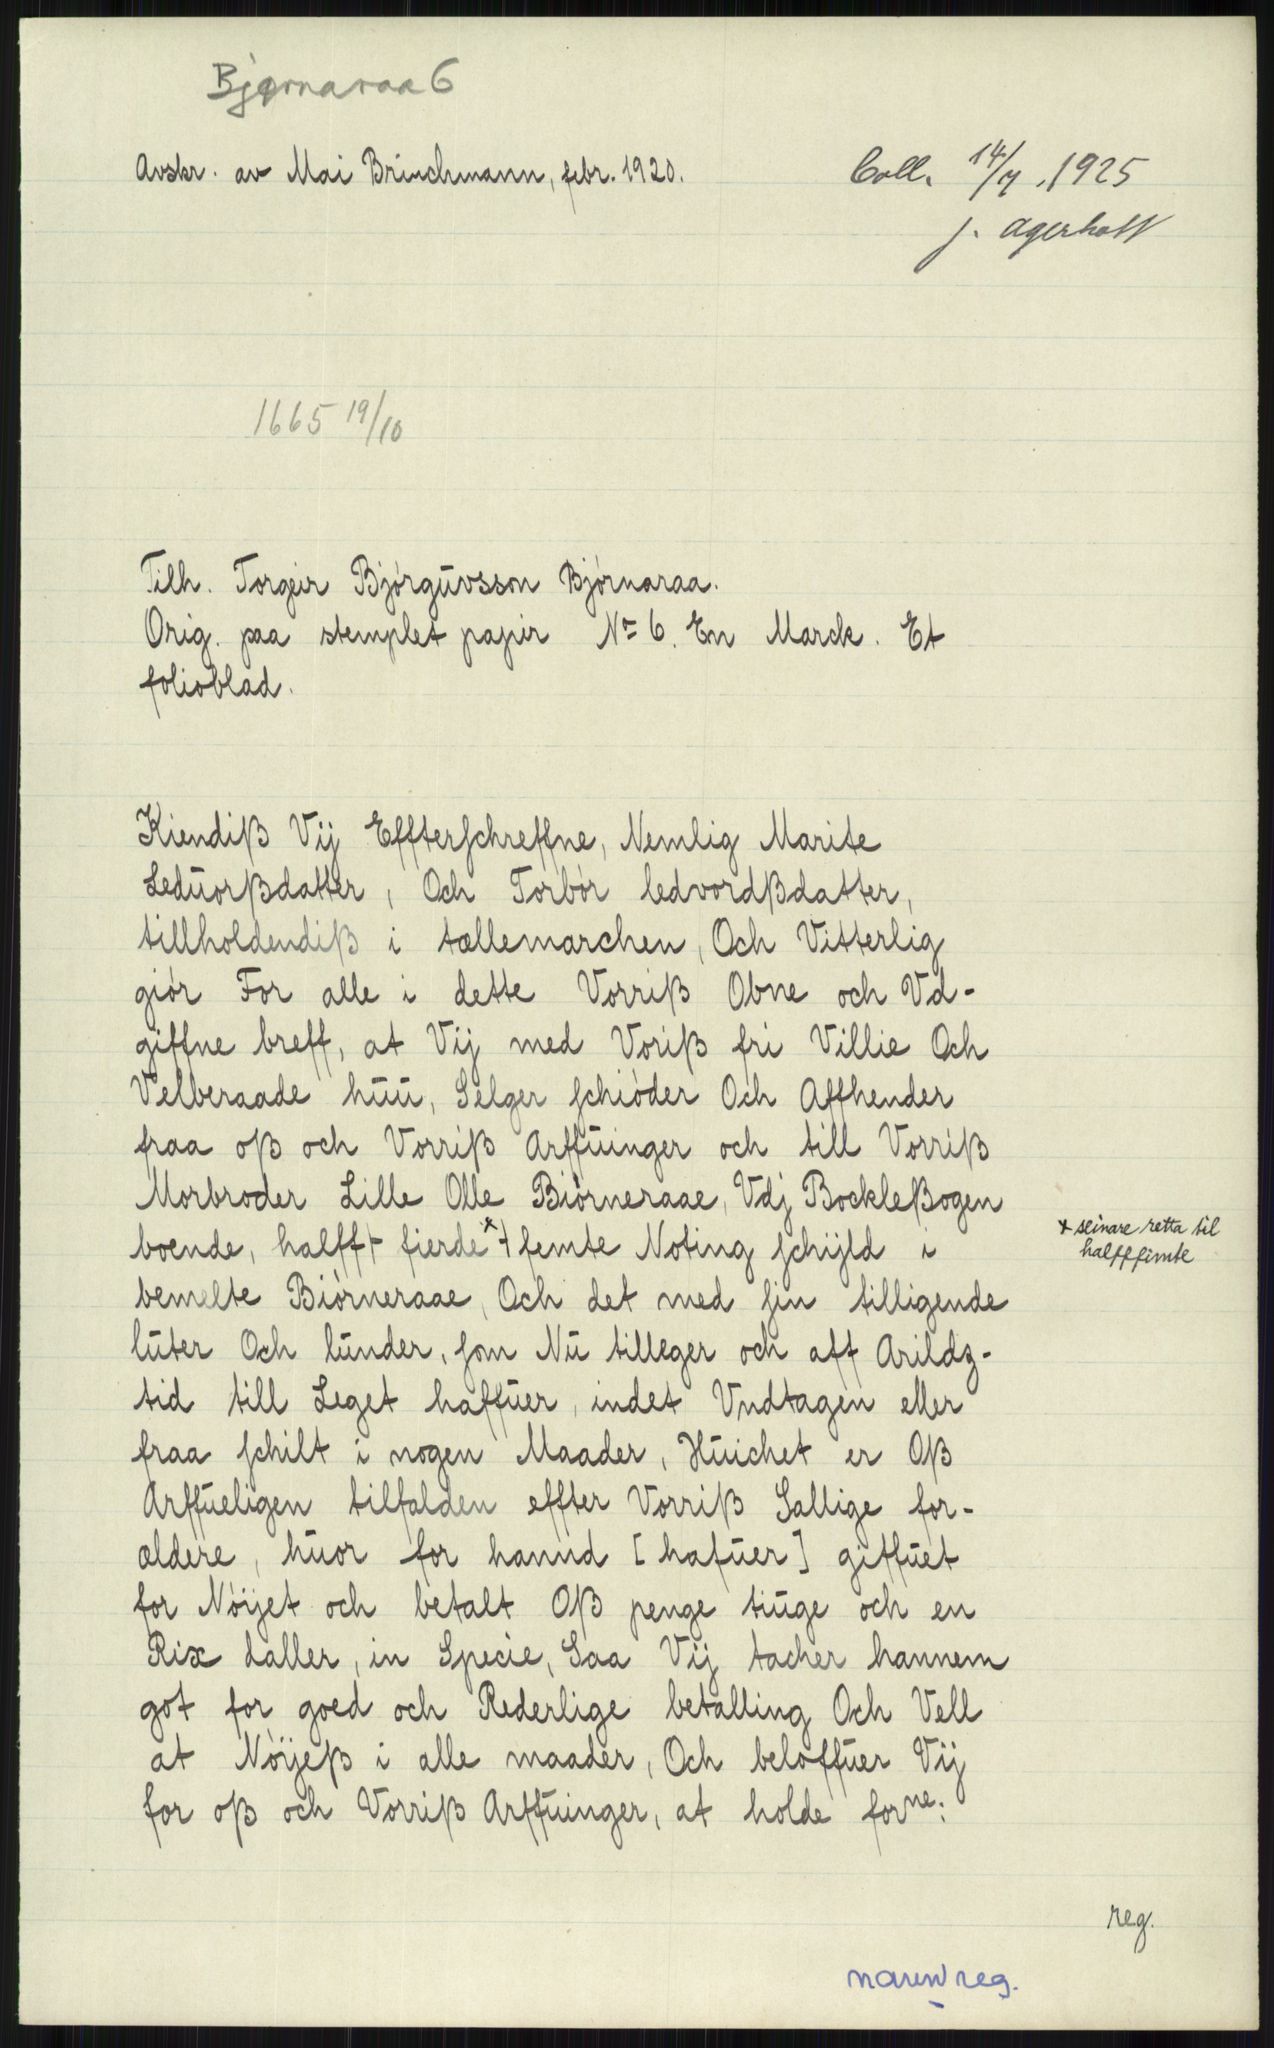 Bjørnaraa 6
Avskr. av Mai Brinchmann, febr. 1920.
Coll. 14/7. 1925
J. Agerholt
1665 19/10
Tilh. Torgeir Bjórguvsson Bjórnaraa.
Orig. paa stemplet papir No 6. En Marck. Et
folioblad.
Kiendiß Vij Effterschreffne, Nemlig Marite
Leduorßdatter, Och Torbór ledvordßdatter,
tillholdendiß i tællemarchen, Och Vitterlig
giór For alle i dette Vorriß Obne och Vd-
giffne breff, at Vij med Voriß fri Villie Och
Velberaade huu, Selger schióder Och Affhender
fraa oß och Vorriß Arffuinger och till Vorriß
Morbroder Lille Olle Biórneraae, Vdj Bockleßogen
boende, halff + fierde x + femte Noting schijld i
x seinare retta til
halfffimte
bemelte Biórneraae, Och det med sin tilligende
luter Och lunder, som Nu tilleger och aff Arildz-
tid till Leget haffuer, indet Vndtagen eller
fraa schilt i nogen Maader, Huichet er Oß
Arffueligen tilfalden effter Vorriß Sallige for-
ældere, huor for hannd [hafuer] giffuet
for Nóijet och betalt Oß penge tiuge och en
Rix daller, in Specie, Saa Vij tacher hannem
got for goed och Rederlige betalling Och Vell
at Nóijeß i alle maader, Och beloffuer Vij
for oß och Vorriß Arffuinger, at holde forne:
reg.
reg.